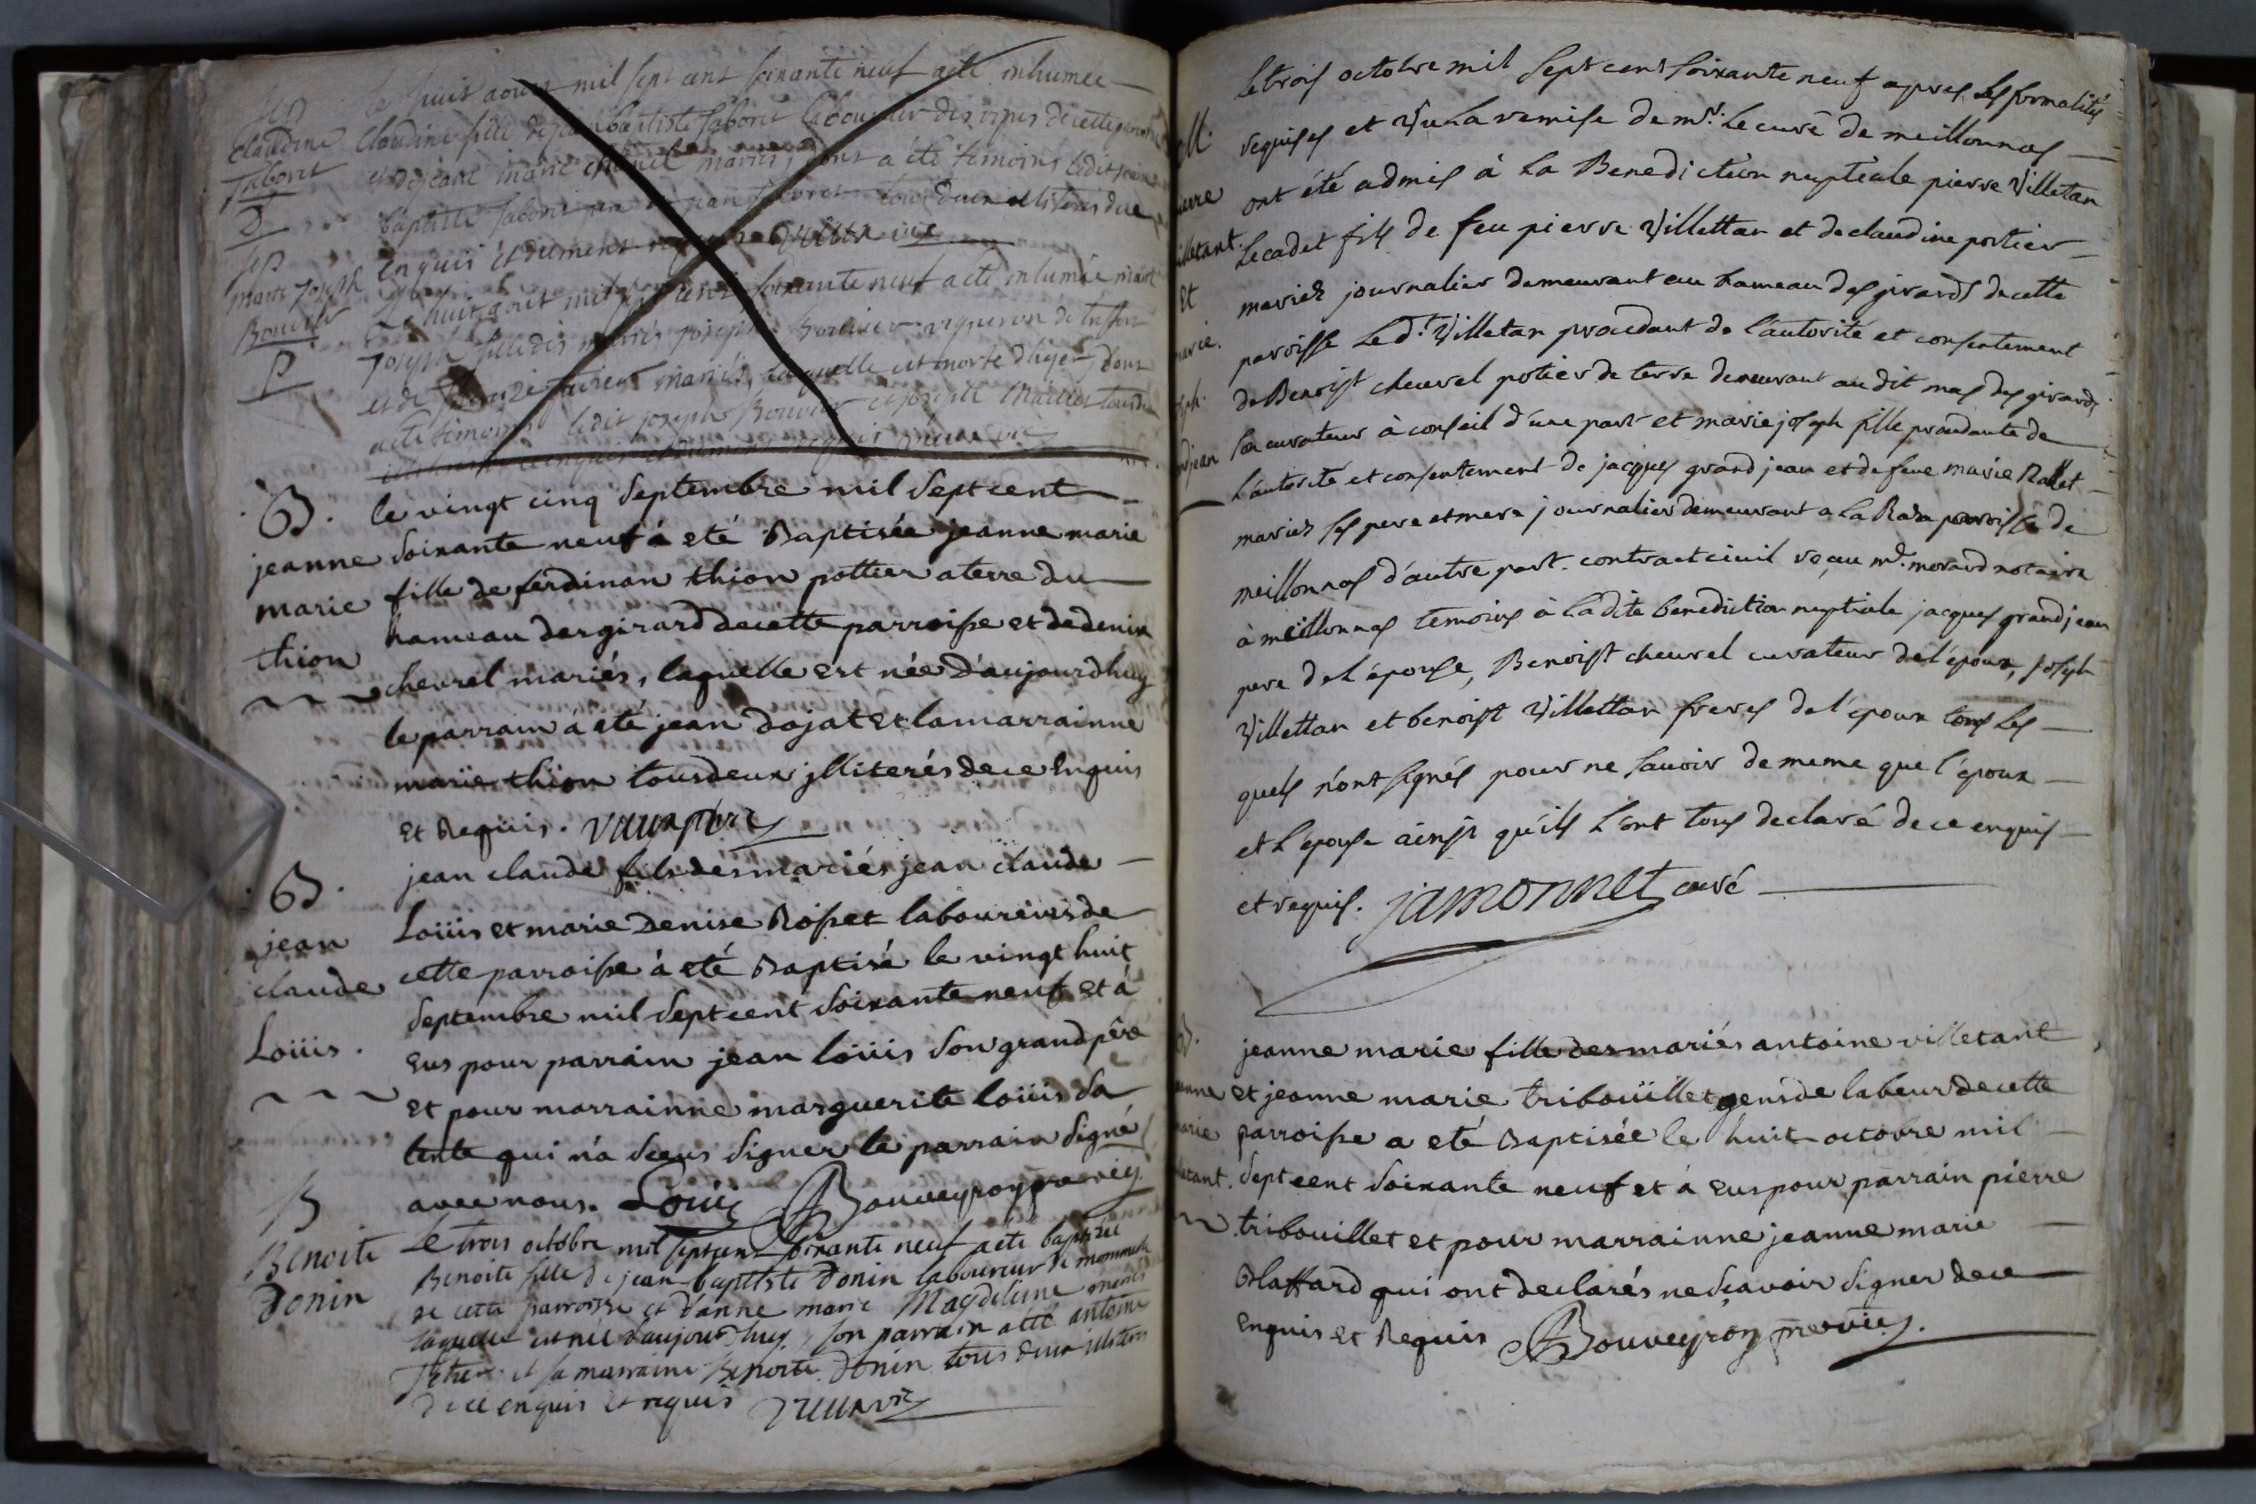 Sep
claudine
Taboret
le huit aoust mil sept cent soixante neuf a été inhumée
claudine fille de jean baptiste Taboret laboureur des ripes de cette
et de jeane marie mariés, dont a été temoins ledit jean
baptiste Taboret jean Taboret tous deux illiterés de ce
enquis et dument requis
Sep
marie joseph
Bouvier
le huit aout mil sept cent soixante neuf a été inhumée marie
joseph fille des mariés joseph Bouvier vigneron de
et de mariés, laquelle est morte d'hyer, dont
a été temoins ledit joseph Bouvier et joseph tous deux
. B .
jeanne
marie
thion
le vingt cinq Septembre mil Sept cent
soixante neuf à eté Baptisée jeanne marie
fille de ferdinan thion pottier a terre du
hameau des girard de cette parroisse et de denise
chevrel mariés, laquelle est née d'aujourdhuy
le parrain à eté jean dajat et la marrainne
marie thion tous deux jlliterés de ce Enquis
Et Requis.
. B .
jean
claude
Loüis .
jean claude fils des mariés jean claude
Loüis et marie Denise Rosset laboureurs de
cette parroisse à eté Baptisé le vingt huit
Septembre mil Sept cent Soixante neuf et à
Eus pour parrain jean loüis Son grand père
Et pour marrainne marguerite loüis Sa
tente qui n'a sceus Signer le parrain Signé
avec nous. Louis Bouveyron pre vic
B
Benoite
Donin
Le trois octobre mil sept cent soixante neuf a été baptizée
Benoite fille de jean baptiste Donin laboureur de
de cette parroisse et d'anne marie Magdeleine mariés
laquelle est née d'aujourd'huy, son parrain a été antoine
et sa marraine Benoite Donin tous deux illiterés
de ce enquis et requis
Le trois octobre mil Sept cent soixante neuf apres les formalités
requises et Vu La remise de mr. Le curé de meillonnas
ont été admis à La Benediction nuptiale pierre Villetan
Le cadet fils de feu pierre Villettan et de claudine portier
mariez journalier demeurant au hameau des girards de cette
paroisse Le dt. Villetan procedant de l'autorité et consentement
de Benoist chevrel potier de terre demeurant au dit mas des girards
son curateur à conseil d'une part et marie joseph fille procedante de
L'autorité et consentement de jacques grand jean et de feue marie Rollet
mariez ses pere et mere journalier demeurant a la Raza paroisse de
meillonnas d'autre part. contract civil reçu me. morand notaire
à meillonnas temoins à La dite benediction nuptiale jacques grandjean
pere de L'épouse, Benoist chevrel curateur de l'époux, joseph
Villettan et benoist Villettan freres de l'epoux tous Les
quels n'ont signés pour ne savoir de meme que l'époux
et L'épouse ainsi qu'ils L'ont tous declaré de ce enquis
et requis. jamonnet curé
jeanne marie fille des mariés antoine villetant
et jeanne marie tribouïllet gens de labeur de cette
parroisse a eté Baptisée le huit octobre mil
Sept cent Soixante neuf et à Eus pour parrain pierre
tribouillet et pour marrainne jeanne marie
Blaffard qui ont declarés ne sçavoir Signer de ce
Enquis et Requis Bouveyron pre vic.